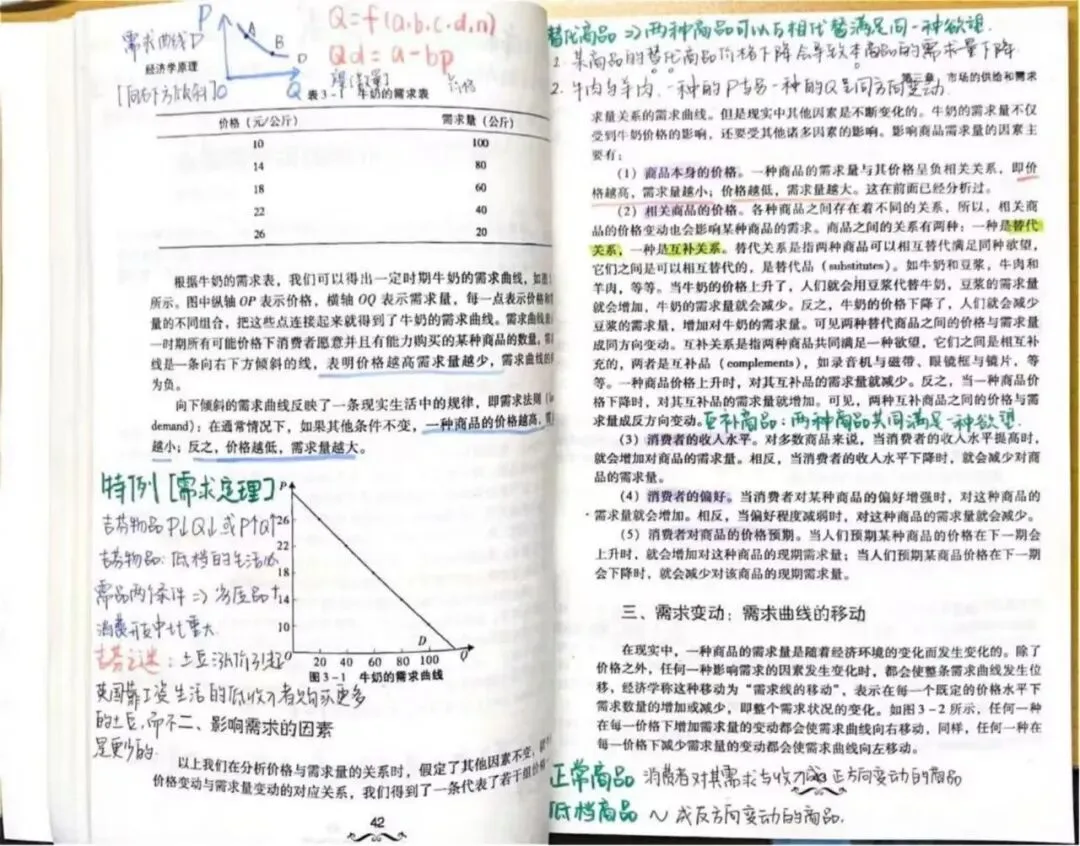 需求曲线D
P
A
B
D
O
Q
[向右下方倾斜]
Q=f(a.b.c.d,n)
Qd=a-bp
价格
经济学原理
表3-1 牛奶的需求表
价格（元/公斤） 需求量（公斤）
10 100
14 80
18 60
22 40
26 20
根据牛奶的需求表，我们可以得出一定时期牛奶的需求曲线，如图
所示。图中纵轴OP表示价格，横轴OQ表示需求量，每一点表示价格和
量的不同组合，把这些点连接起来就得到了牛奶的需求曲线。需求曲线
一时期所有可能价格下消费者愿意并且有能力购买的某种商品的数量。
线是一条向右下方倾斜的线，表明价格越高需求量越少，需求曲线的
为负。
向下倾斜的需求曲线反映了一条现实生活中的规律，即需求法则（
demand）：在通常情况下，如果其他条件不变，一种商品的价格越高，
越小；反之，价格越低，需求量越大。
特例[需求定理]
吉芬物品P↓Q↓或P↑Q↑
吉芬物品：低档的生活必
需品两个条件⇒劣质品+
消费开支中比重大
吉芬之谜：土豆涨价引起
英国靠工资生活的低收入者购买更多
的土豆，而不
是更少的.
P
26
22
18
14
10
O 20 40 60 80 100 Q
D
图3-1 牛奶的需求曲线
二、影响需求的因素
以上我们在分析价格与需求量的关系时，假定了其他因素不变，
价格变动与需求量变动的对应关系，我们得到了一条代表了若干组价格
42
替代商品⇒两种商品可以互相代替满足同一种欲望.
1. 某商品的替代商品价格下降会导致本商品的需求量下降
第三章 市场的供给和需求
2. 牛肉与羊肉，一种的P与另一种的Q呈同方向变动.
求量关系的需求曲线。但是现实中其他因素是不断变化的。牛奶的需求量不仅
受到牛奶价格的影响，还要受其他诸多因素的影响。影响商品需求量的因素主
要有：
（1）商品本身的价格。一种商品的需求量与其价格呈负相关关系，即价
格越高，需求量越小；价格越低，需求量越大。这在前面已经分析过。
（2）相关商品的价格。各种商品之间存在着不同的关系，所以，相关商
品的价格变动也会影响某种商品的需求。商品之间的关系有两种：一种是替代
关系，一种是互补关系。替代关系是指两种商品可以相互替代满足同种欲望，
它们之间是可以相互替代的，是替代品（substitutes）。如牛奶和豆浆，牛肉和
羊肉，等等。当牛奶的价格上升了，人们就会用豆浆代替牛奶，豆浆的需求量
就会增加，牛奶的需求量就会减少。反之，牛奶的价格下降了，人们就会减少
豆浆的需求量，增加对牛奶的需求量。可见两种替代商品之间的价格与需求量
成同方向变动。互补关系是指两种商品共同满足一种欲望，它们之间是相互补
充的，两者是互补品（complements），如录音机与磁带、眼镜框与镜片，等
等。一种商品价格上升时，对其互补品的需求量就减少。反之，当一种商品价
格下降时，对其互补品的需求量就增加。可见，两种互补商品之间的价格与需
求量成反方向变动。互补商品：两种商品共同满足一种欲望.
（3）消费者的收入水平。对多数商品来说，当消费者的收入水平提高时，
就会增加对商品的需求量。相反，当消费者的收入水平下降时，就会减少对商
品的需求量。
（4）消费者的偏好。当消费者对某种商品的偏好增强时，对这种商品的
需求量就会增加。相反，当偏好程度减弱时，对这种商品的需求量就会减少。
（5）消费者对商品的价格预期。当人们预期某种商品的价格在下一期会
上升时，就会增加对这种商品的现期需求量；当人们预期某商品价格在下一期
会下降时，就会减少对该商品的现期需求量。
三、需求变动：需求曲线的移动
在现实中，一种商品的需求量是随着经济环境的变化而发生变化的。除了
价格之外，任何一种影响需求的因素发生变化时，都会使整条需求曲线发生位
移，经济学称这种移动为“需求线的移动”，表示在每一个既定的价格水平下
需求数量的增加或减少，即整个需求状况的变化。如图3-2所示，任何一种
在每一价格下增加需求量的变动都会使需求曲线向右移动，同样，任何一种在
每一价格下减少需求量的变动都会使需求曲线向左移动。
正常商品 消费者对其需求与收入成正方向变动的商品
低档商品 ～ 成反方向变动的商品.